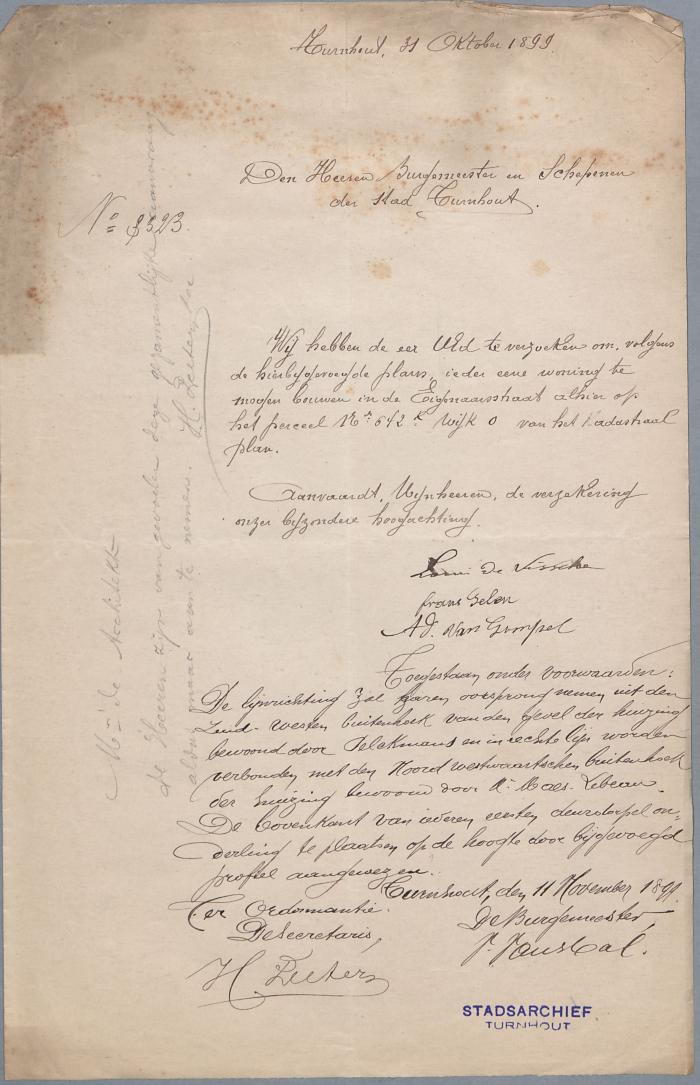 Turnhout, 31 Oktober 1899
Den Heeren Burgemeester en Schepenen
der stad Turnhout.
N° 8523.
Wij hebben de eer UEd te verzoeken om, volgens
de hierbijgevoegde plans, ieder eene woning te
mogen bouwen in de Eigenaarsstraat alhier op
het perceel Nr 642 Wijk O van het Kadastraal
plan.
Aanvaardt, Mijnheeren, de verzekering
onzer bijzondere hoogachting.
Louis De Vissche
frans Gelen
Ad. Van Gompel
Toegestaan onder voorwaarden:
De lijnrichting zal haren oorsprong nemen uit den
Zuid-westen buitenhoek van den gevel der huizing
bewoond door Pelckmans en in rechte lijn worden
verbonden met den Noord westwaartschen buitenhoek
der huizing bewoond door Mr Maes-Lebeau.
De bovenkant van iederen eersten deurdorpel on-
derling te plaatsen op de hoogte door bijgevoegd
profiel aangewezen.
Turnhout, den 11 November 1899
Ter Ordonnantie.
De Secretaris,
H. Peeters
De Burgemeester,
STADSARCHIEF
TURNHOUT
Mr de Architekt
de Heeren zijn van gevoelen deze gezamentlijke aanvraag
aldus maar aan te nemen.
H. Peeters